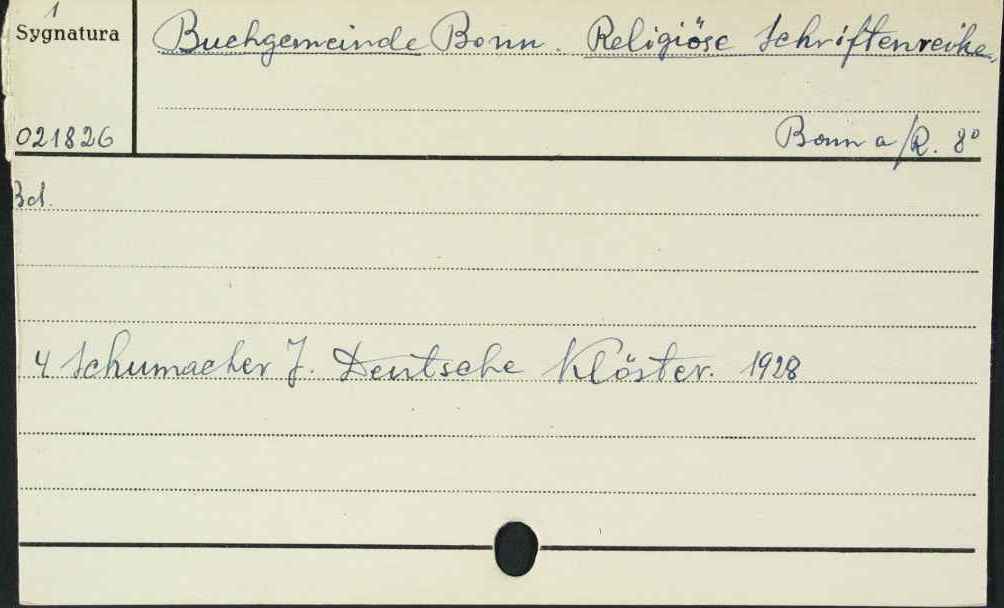 1
Sygnatura
Buchgemeinde Bonn. Religiöse Schriftenreihe.
021826
Bonn a/R. 8°
Bd.
4 Schumacher J. Deutsche Klöster. 1928